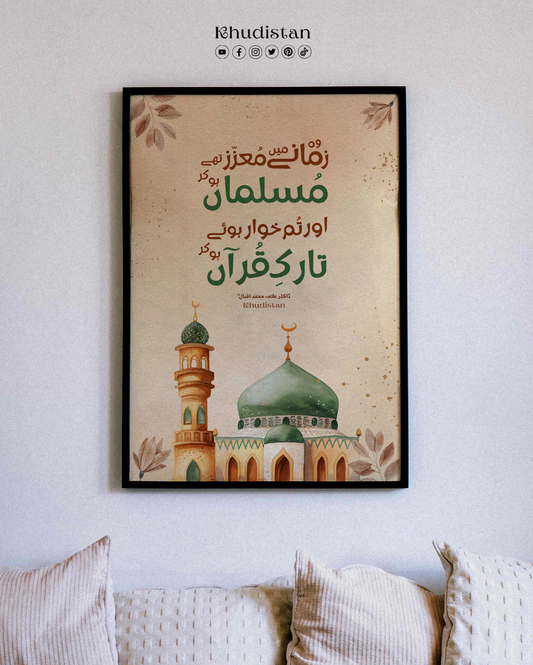 Khudistan
وہ زمانے میں مُعزّز تھے
مُسلماں ہو کر
اور تُم خوار ہوئے
تارکِ قُرآں ہو کر
ڈاکٹر علامہ محمد اقبالؒ
Khudistan